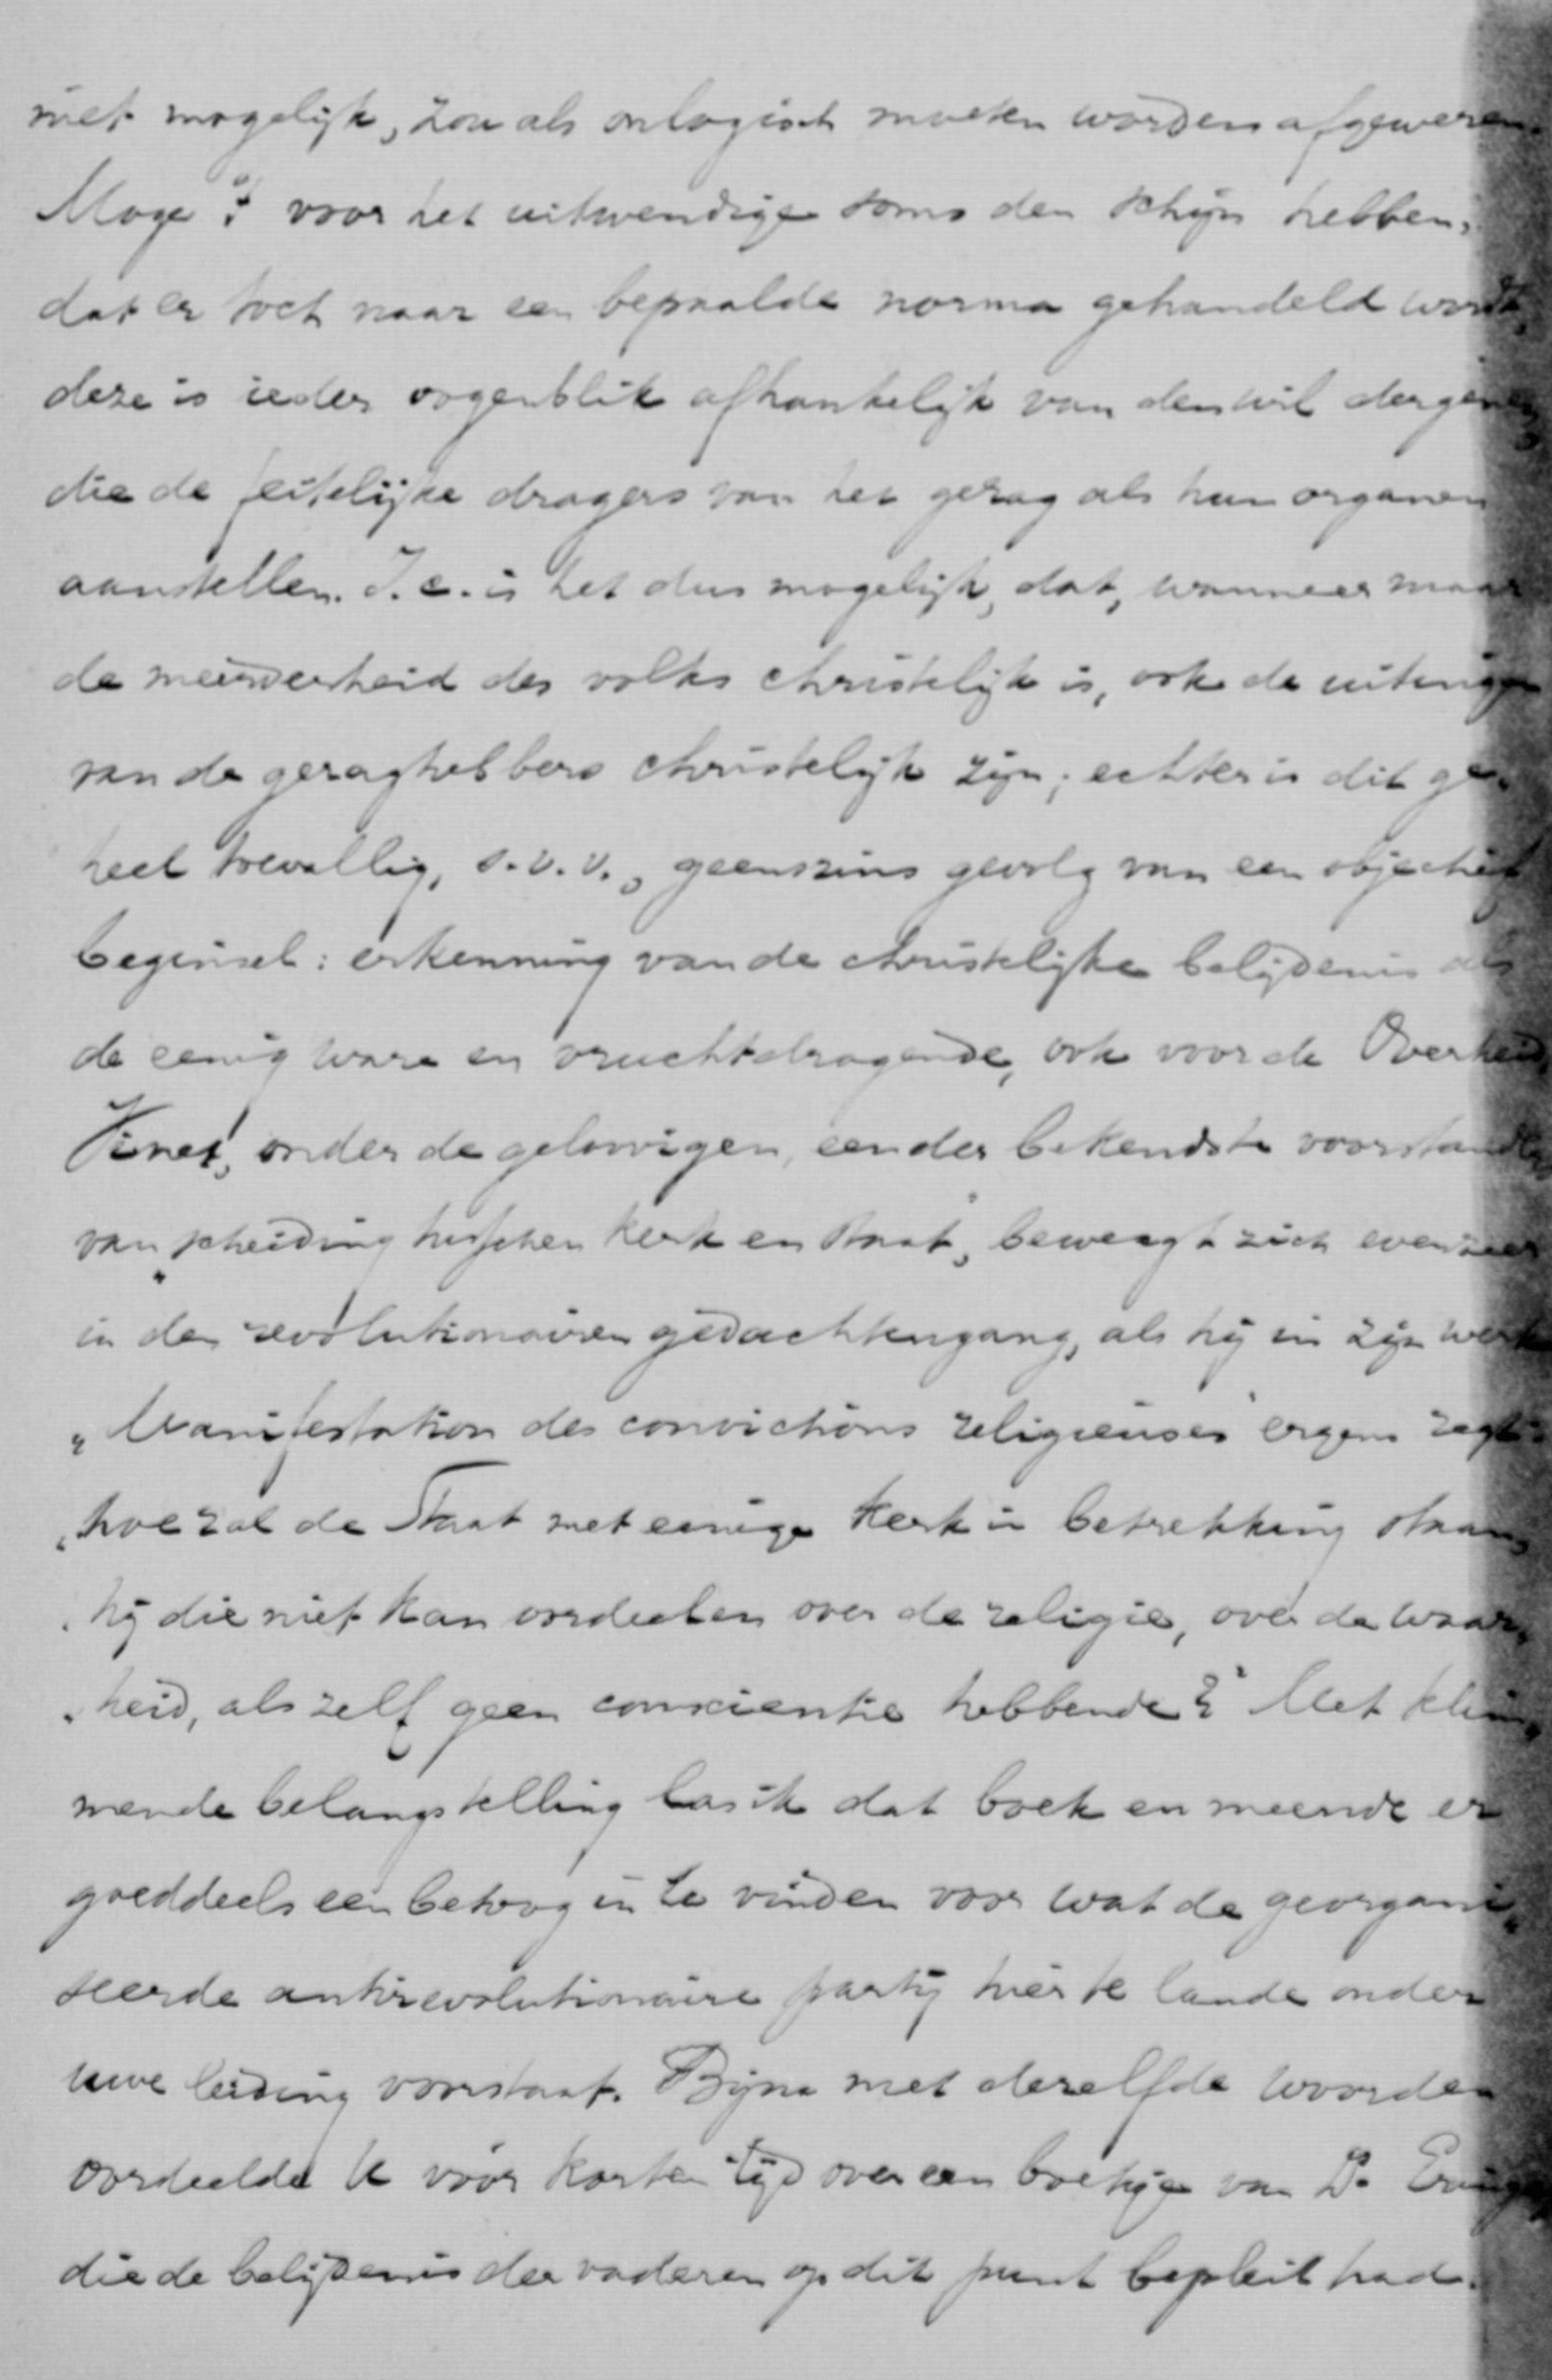 niet mogelijk, zou als onlogisch moeten worden afgewezen.
Moge 't voor het uitwendige soms den schijn hebben,
dat er toch naar een bepaalde norma gehandeld wordt,
deze is ieder oogenblik afhankelijk van den wil dergenen,
die de feitelijke dragers van het gezag als hun organen
aanstellen. I.c. is het dus mogelijk, dat, wanneer maar
de meerderheid des volks christelijk is, ook de uitingen
van de gezaghebbers christelijk zijn; echter is dit ge-
heel toevallig, s.v.v., geenszins gevolg van een objectief
beginsel: erkenning van de christelijke belijdenis als
de eenig ware en vruchtdragende, ook voor de Overheid,
Vinet, onder de geloovigen, een der bekendste voorstanders
van scheiding tusschen kerk en staat, beweegt zich evenzeer
in den revolutionairen gedachtengang, als hij in zijn werk
„Manifestation des convictions religieuses" ergens zegt:
„hoe zal de Staat met eenige Kerk in betrekking staan,
„hij die niet kan oordeelen over de religie, over de waar„
„heid, als zelf geen conscientie hebbende?" Met klim„
mende belangstelling las ik dat boek en meende er
goeddeels een betoog in te vinden voor wat de georgani„
seerde antirevolutionaire partij hier te lande onder
uwe leiding voorstaat. Bijna met dezelfde woorden
oordeelde U vóór korten tijd over een boekje van Ds.
die de belijdenis der vaderen op dit punt bepleit had.